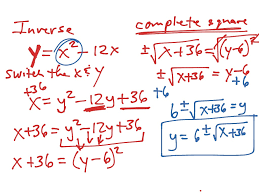 Inverse
y = x² - 12x
Switch the x & y
+36
x = y² - 12y + 36
x+36 = y² - 12y + 36
x + 36 = (y - 6)²
complete square
±√x+36 = √(y-6)²
±√x+36 = y-6
+6 +6
6 ± √x+36 = y
y = 6 ± √x+36